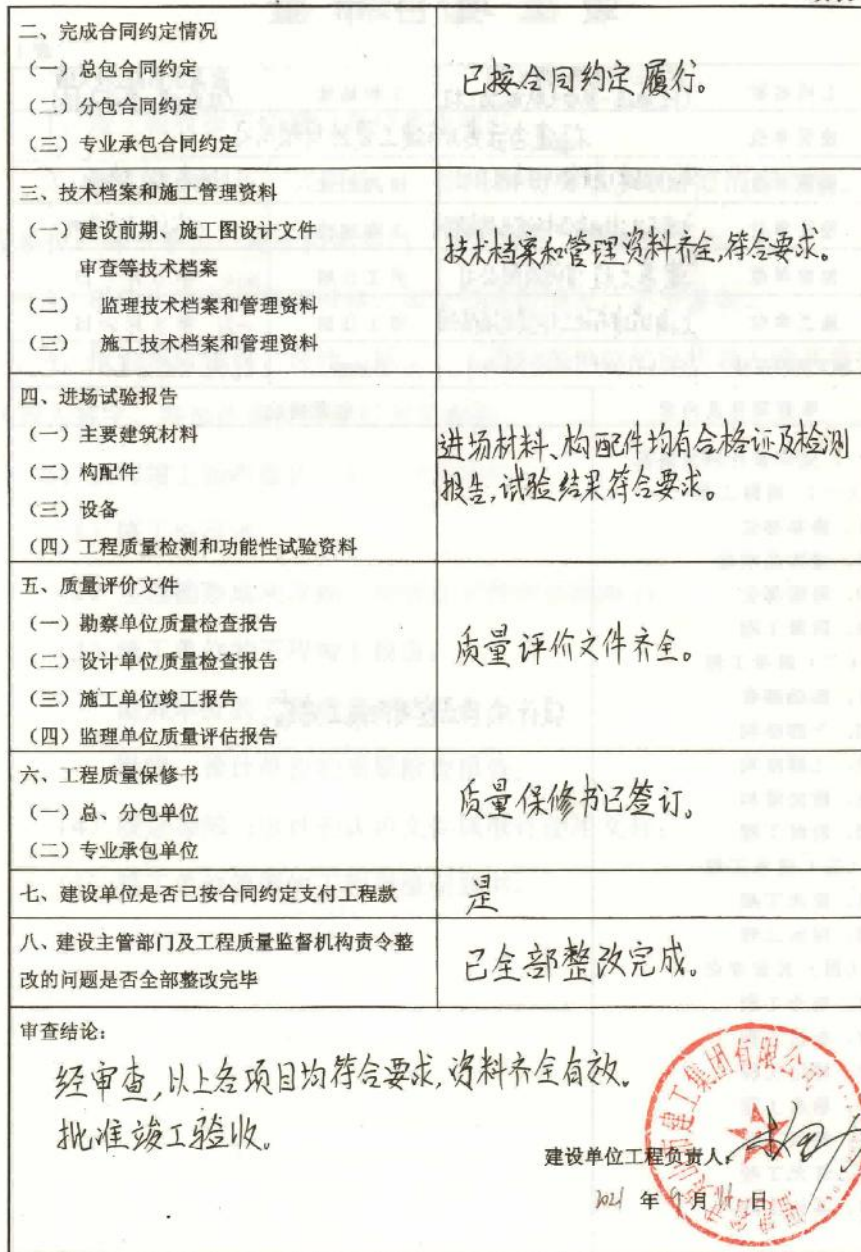 二、完成合同约定情况
（一）总包合同约定
（二）分包合同约定
（三）专业承包合同约定
已按合同约定履行。
三、技术档案和施工管理资料
（一）建设前期、施工图设计文件
审查等技术档案
（二） 监理技术档案和管理资料
（三） 施工技术档案和管理资料
技术档案和管理资料齐全,符合要求。
四、进场试验报告
（一）主要建筑材料
（二）构配件
（三）设备
（四）工程质量检测和功能性试验资料
进场材料、构配件均有合格证及检测
报告,试验结果符合要求。
五、质量评价文件
（一）勘察单位质量检查报告
（二）设计单位质量检查报告
（三）施工单位竣工报告
（四）监理单位质量评估报告
质量评价文件齐全。
六、工程质量保修书
（一）总、分包单位
（二）专业承包单位
质量保修书已签订。
七、建设单位是否已按合同约定支付工程款
是
八、建设主管部门及工程质量监督机构责令整
改的问题是否全部整改完毕
已全部整改完成。
审查结论：
经审查,以上各项目均符合要求,资料齐全有效。
批准竣工验收。
建设单位工程负责人：
2021 年 9 月 日
建工集团有限公司